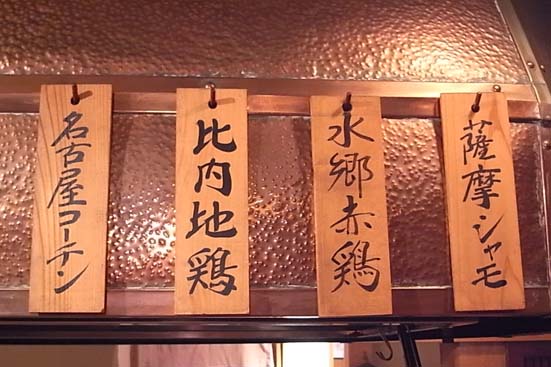 名古屋コーチン
比内地鶏
水郷赤鶏
薩摩シャモ